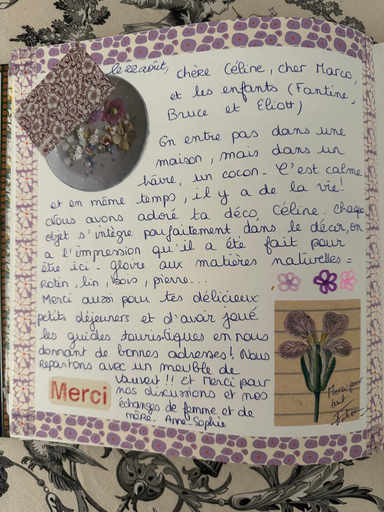 le 22 août, chère Céline, cher Marco,
et les enfants (Fantine,
Bruce et Eliott)
On entre pas dans une
maison, mais dans un
hâvre, un cocon. C'est calme
et en même temps, il y a de la vie!
Nous avons adoré ta déco, Céline. Chaque
objet s'intègre parfaitement dans le décor, on
a l'impression qu'il a été fait pour
être ici. gloire aux matières naturelles =
Rotin, lin, bois, pierre...
Merci aussi pour tes délicieux
petits déjeuners et d'avoir joué
les guides touristiques en nous
donnant de bonnes adresses! Nous
repartons avec un meuble de
Vauvert!! Et Merci pour
nos discussions et nos
échanges de femme et de
mère. Anne-Sophie
Merci
Merci pour
tout